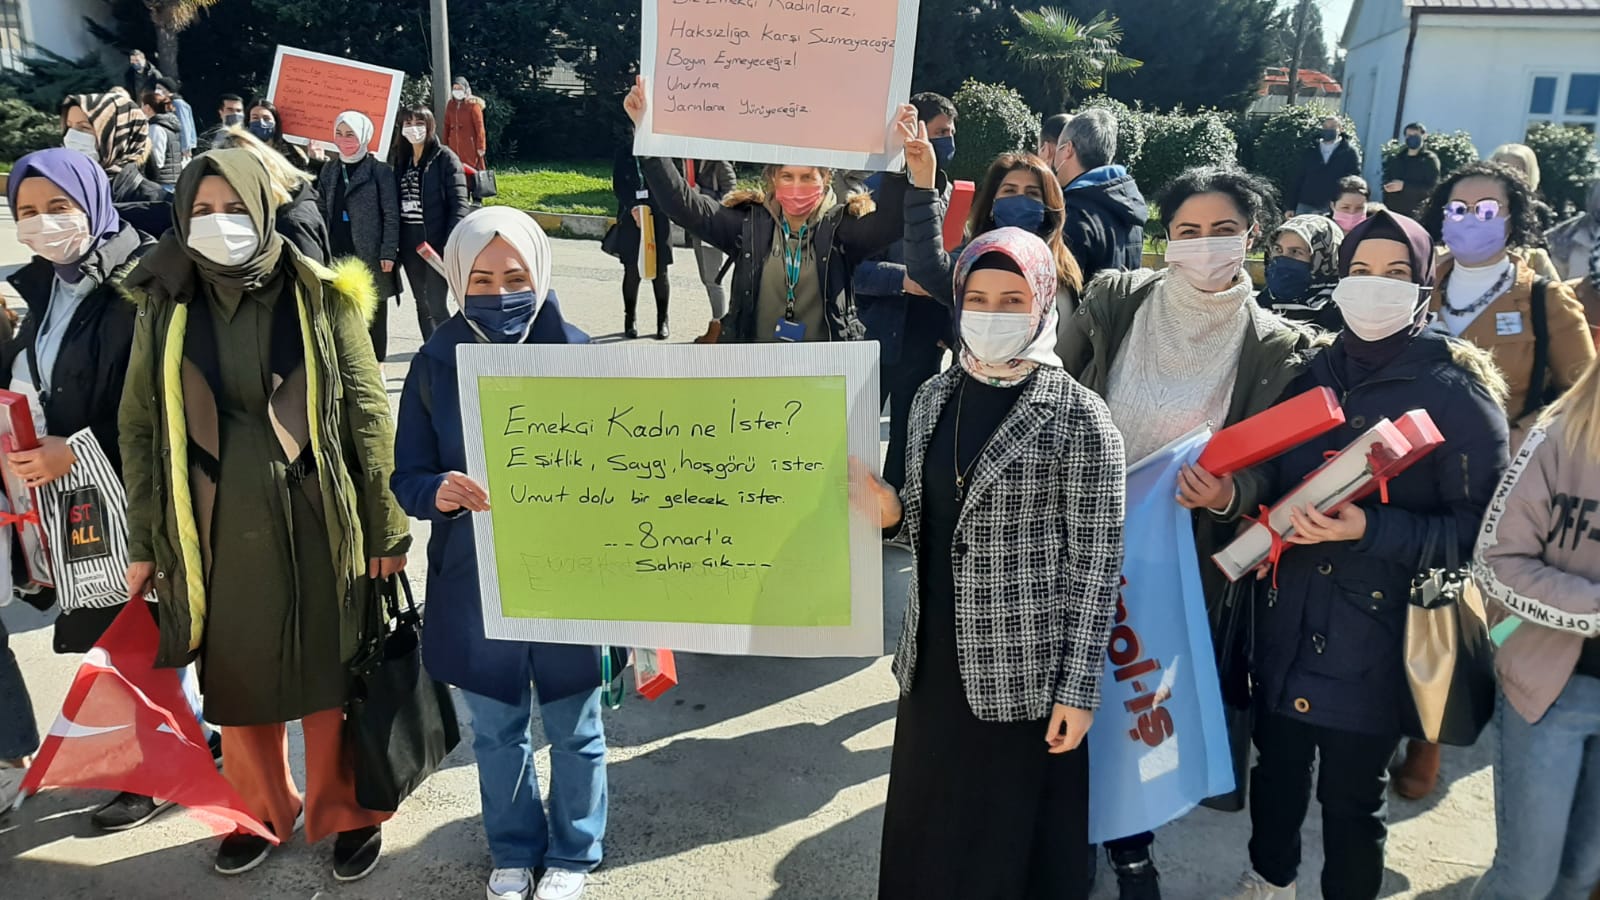 Biz Emekçi Kadınlarız,
Haksızlığa Karşı Susmayacağız
Boyun Eymeyeceğiz!
Unutma
Yarınlara Yürüyeceğiz
Emekçi Kadın ne İster?
Eşitlik, Saygı, hoşgörü ister.
Umut dolu bir gelecek ister.
--- 8 mart'a
Sahip çık ---
IST
ALL
iş
OFF-WHITE
OFF-
WHITE!
OFF-WHI